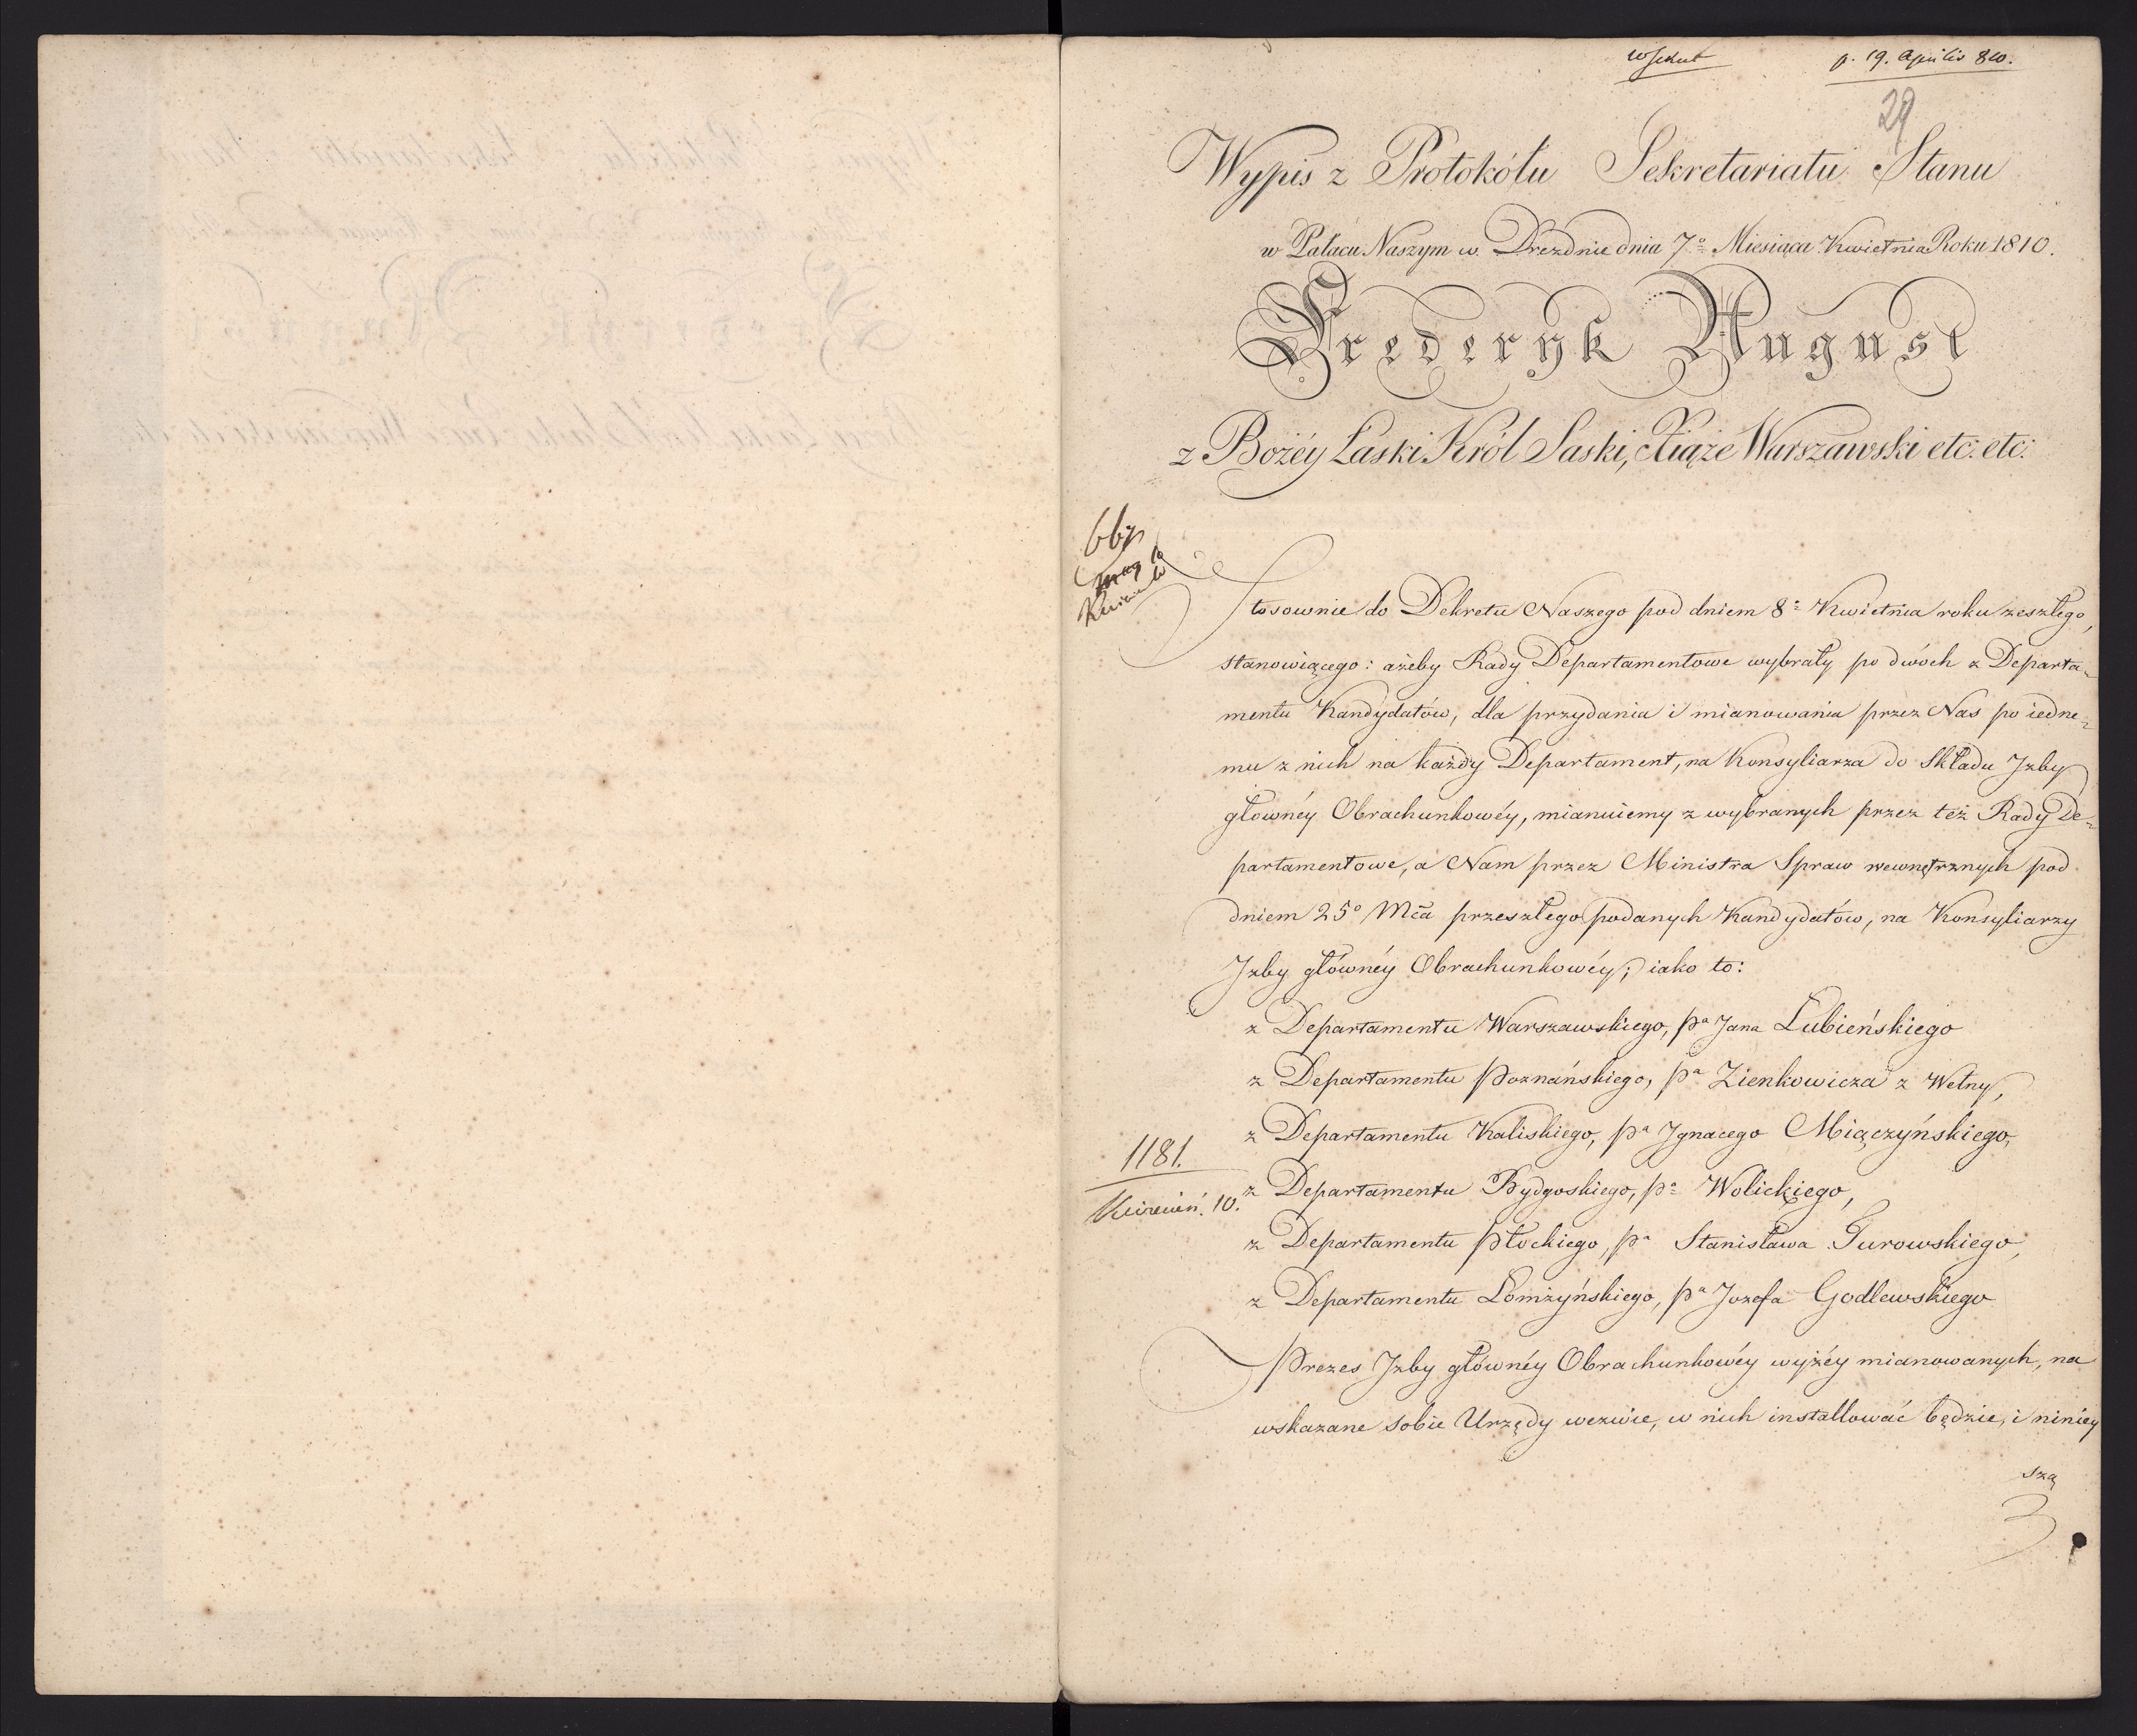 p. 19. Aprilis 810.
29
Wypis z Protokółu Sekretariatu Stanu
w Pałacu Naszym w Dreznie dnia 7º Miesiąca Kwietnia Roku 1810.
Fryderyk August
z Bożéy Łaski Król Saski, Xiąże Warszawski etc: etc:
Stosownie do Dekretu Naszego pod dniem 8º Kwietnia roku zeszłego,
stanowiącego: ażeby Rady Departamentowe wybrały po dwóch z Departa-
mentu Kandydatów, dla przydania i mianowania przez Nas po iedne-
mu z nich na każdy Departament, na Konsyliarza do Składu Jzby
głownéy Obrachunkowéy, mianuiemy z wybranych przez też Rady De-
partamentowe, a Nam przez Ministra Spraw wewnętrznych pod
dniem 25º Mca przeszłego podanych Kandydatów, na Konsyliarzy
Jzby głównéy Obrachunkowéy; iako to:
z Departamentu Warszawskiego, Pª Jana Łubieńskiego
z Departamentu Poznańskiego, Pª Zienkowicza z Wełny,
z Departamentu Kaliskiego, Pª Jgnacego Miączyńskiego,
1181.
z Departamentu Bydgoskiego, Pª Wolickiego,
10.
z Departamentu Płockiego, Pª Stanisława Gurowskiego,
z Departamentu Łomżyńskiego, Pª Jozefa Godlewskiego
Prezes Jzby głównéy Obrachunkowéy wyżéy mianowanych, na
wskazane sobie Urzędy wezwie, w nich installować będzie, i niniey
szą